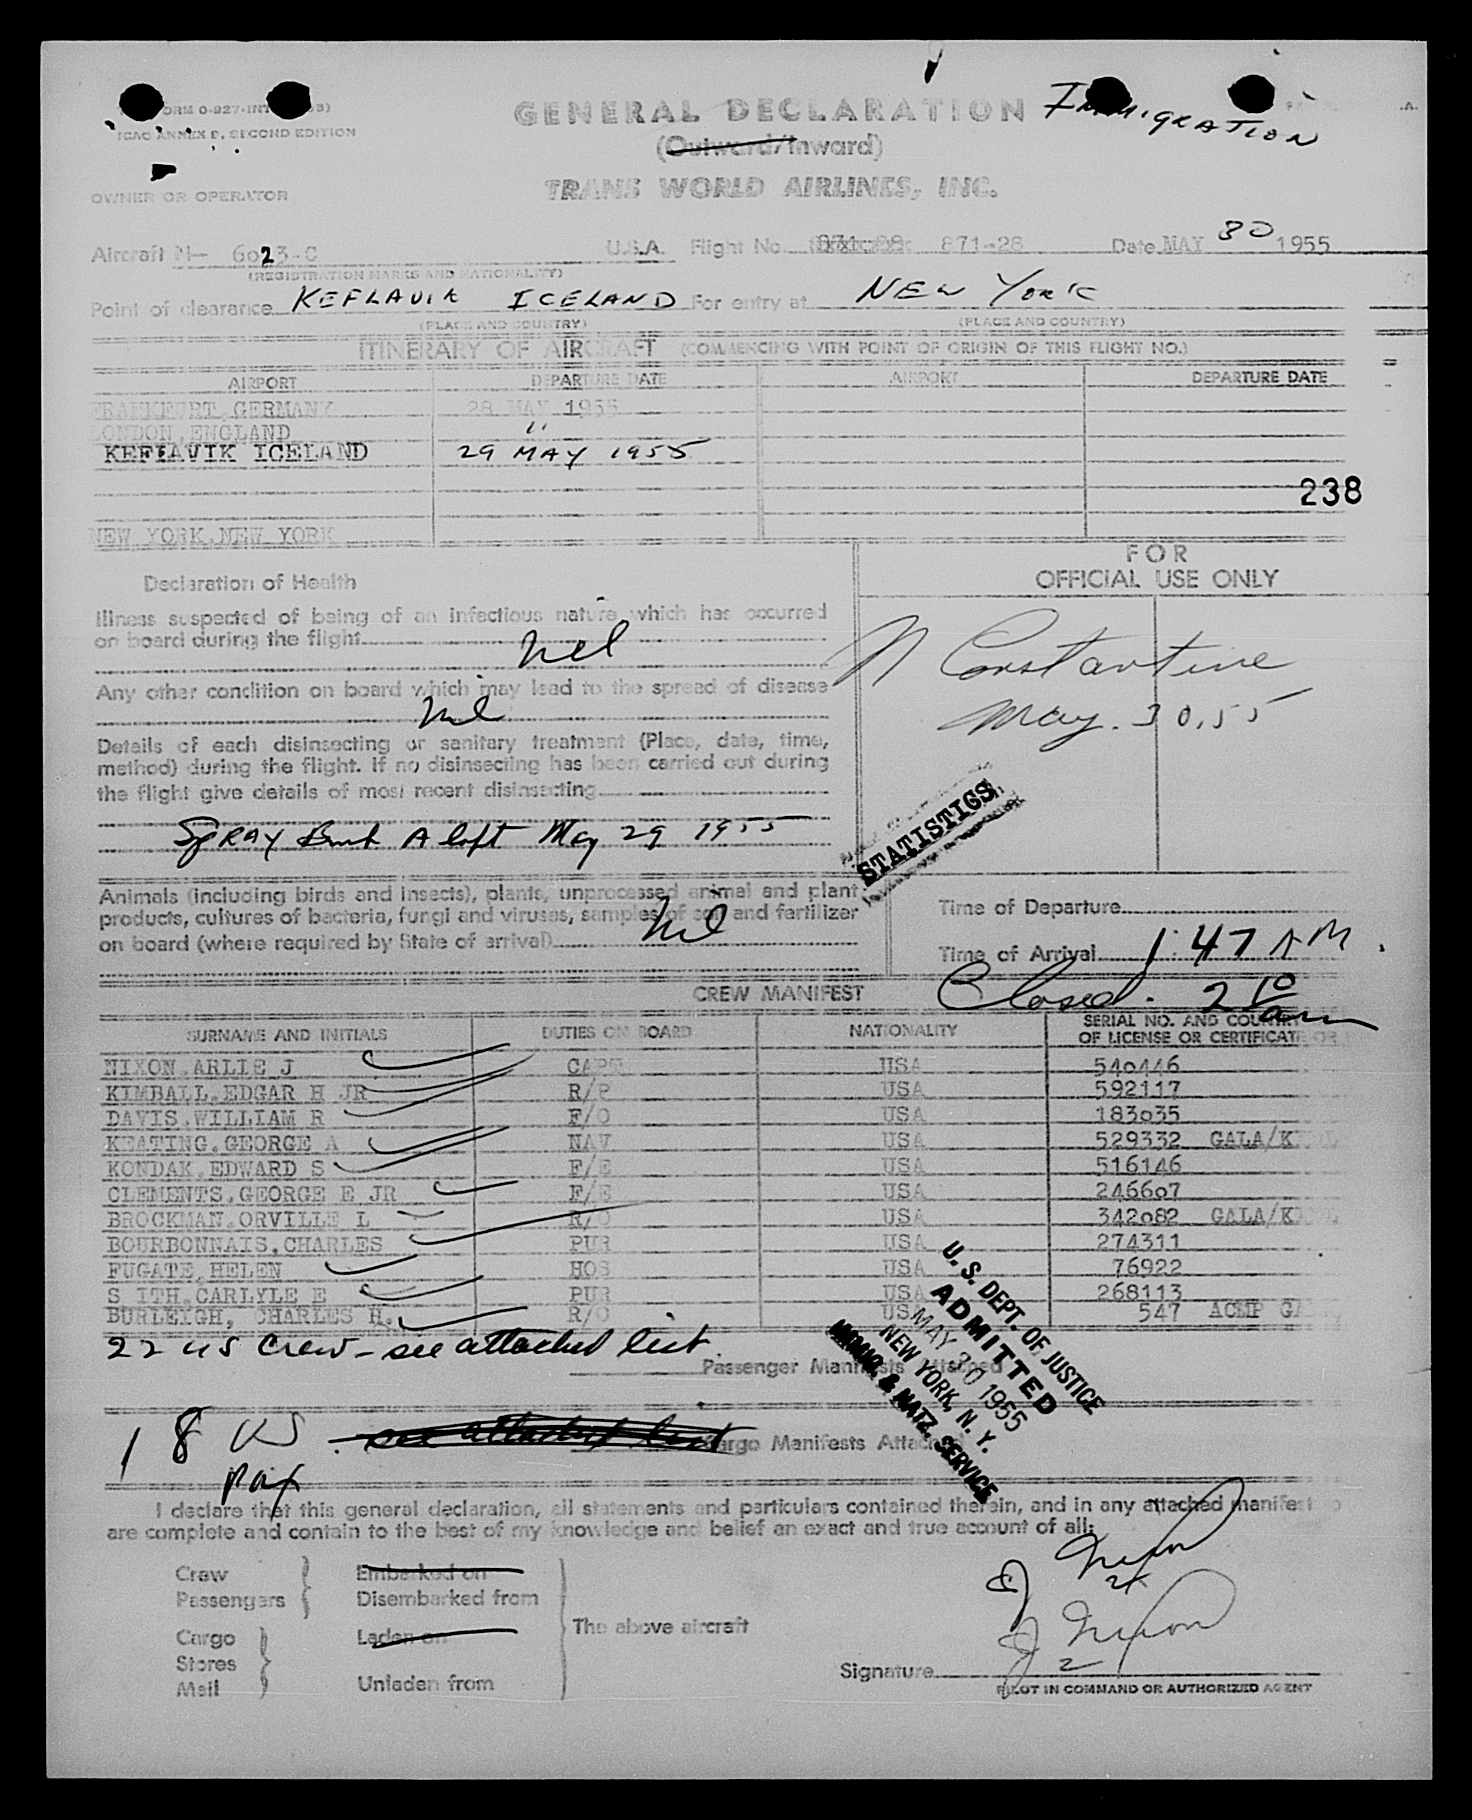 GENERAL DECLARATION
IMMIGRATION
ICAO ANNEX 9, SECOND EDITION
(Outward/Inward)
OWNER OR OPERATOR
TRANS WORLD AIRLINES, INC.
Aircraft N— 6023-C U.S.A. Flight No. 871-28 Date MAY 30 1955
(REGISTRATION MARKS AND NATIONALITY)
Point of clearance KEFLAVIK ICELAND For entry at NEW YORK
(PLACE AND COUNTRY) (PLACE AND COUNTRY)
ITINERARY OF AIRCRAFT (COMMENCING WITH POINT OF ORIGIN OF THIS FLIGHT NO.)
AIRPORT DEPARTURE DATE AIRPORT DEPARTURE DATE
FRANKFURT, GERMANY 28 MAY 1955
LONDON, ENGLAND "
KEFLAVIK ICELAND 29 MAY 1955
238
NEW YORK, NEW YORK
FOR
OFFICIAL USE ONLY
Declaration of Health
Illness suspected of being of an infectious nature which has occurred
on board during the flight nil
N Constantine
May. 30, 55
Any other condition on board which may lead to the spread of disease
nil
Details of each disinsecting or sanitary treatment (Place, date, time,
method) during the flight. If no disinsecting has been carried out during
the flight give details of most recent disinsecting
SPRAY Bomb Aloft May 29 1955
STATISTICS
Animals (including birds and insects), plants, unprocessed animal and plant
products, cultures of bacteria, fungi and viruses, samples of soil and fertilizer
on board (where required by State of arrival) Nil
Time of Departure
Time of Arrival 1:47 AM.
Closed. 2 10 am
CREW MANIFEST
SURNAME AND INITIALS DUTIES ON BOARD NATIONALITY SERIAL NO. AND COUNTRY
OF LICENSE OR CERTIFICATE
NIXON, ARLIE J CAPT USA 540446
KIMBALL, EDGAR H JR R/P USA 592117
DAVIS, WILLIAM R F/O USA 183035
KEATING, GEORGE A NAV USA 529332 GALA/K
KONDAK, EDWARD S F/E USA 516146
CLEMENTS, GEORGE E JR F/E USA 246607
BROCKMAN, ORVILLE L R/O USA 342082 GALA/K
BOURBONNAIS, CHARLES PUR USA 274311
FUGATE, HELEN HOS USA 76922
S ITH, CARLYLE E PUR USA 268113
BURLEIGH, CHARLES H. R/O USA 547 ACMP GA
22 US Crew - see attached list.
Passenger Manifests Attached
U. S. DEPT. OF JUSTICE
ADMITTED
MAY 30 1955
NEW YORK, N. Y.
IMMIG. & NATZ. SERVICE
18 US see attached list Cargo Manifests Attached
pax
I declare that this general declaration, all statements and particulars contained therein, and in any attached manifest
are complete and contain to the best of my knowledge and belief an exact and true account of all:
Crew Embarked on
Passengers Disembarked from
The above aircraft
Cargo Laden on
Stores
Mail Unladen from
AJ Nixon
AJ Nixon
Signature
PILOT IN COMMAND OR AUTHORIZED AGENT